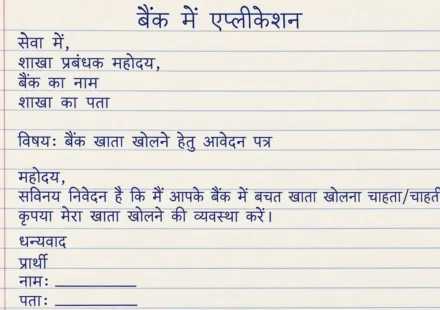 बैंक में एप्लीकेशन
सेवा में,
शाखा प्रबंधक महोदय,
बैंक का नाम
शाखा का पता
विषय: बैंक खाता खोलने हेतु आवेदन पत्र
महोदय,
सविनय निवेदन है कि मैं आपके बैंक में बचत खाता खोलना चाहता/चाहती
कृपया मेरा खाता खोलने की व्यवस्था करें।
धन्यवाद
प्रार्थी
नाम: __________
पता: __________